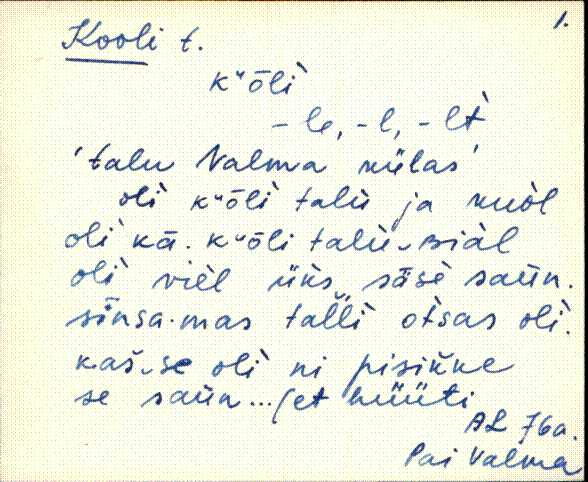 1.
Kooli t.
kᵘōlì
-le, -l, -lt̀
'talu Valma külas'
olì kᵘōlì talù ja kuòl
olì kā. kᵘōli talù‿siàl
olì vièl üks sāsè saùn.
sīnsa·mas tallì otsas olì.
kaš‿se olì ni pisikke
se saùn... (et hüüti
AL 76a.
Pai Valma